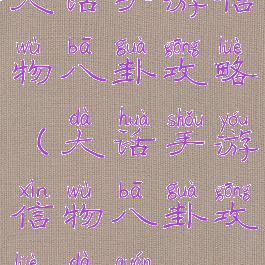 大话手游信
wù bā guà gōng lüè
物八卦攻略
dà huà shǒu yóu
（大话手游
xìn wù bā guà gōng
信物八卦攻
lüè dà quán